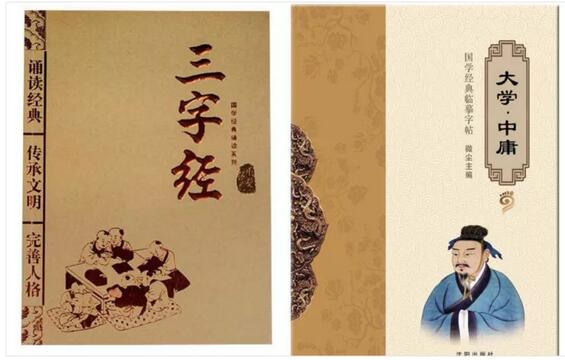 诵读经典
传承文明
完善人格
三字经
国学经典诵读系列
大学·中庸
国学经典临摹字帖
微尘主编
沈阳出版社